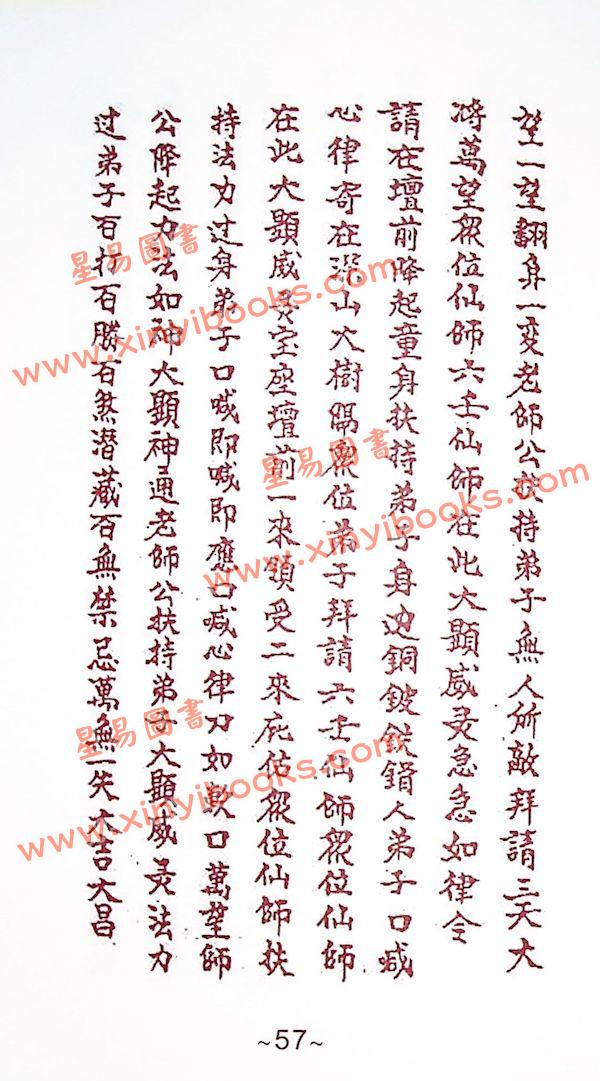 望一望翻身一变老師公扶持弟子無人所敵拜請三天大
将萬望眾位仙師六壬仙師在此大顕威灵急急如律令
請在壇前降起童身扶持弟子身边銅鈹鉄鎖人弟子口喊
心律寄在深山大樹陽眾位弟子拜請六壬仙師眾位仙師
在此大顕威灵宝座壇前一來領受二來庇佑眾位仙師扶
持法力过身弟子口喊即喊即應口喊心律刀如軟口萬望師
公降起力法如神大顕神通老師公扶持弟子大顕威灵法力
过弟子百打百勝百煞潜藏百無禁忌萬無一失大吉大昌
星易圖書
www.xinyibooks.com
星易圖書
www.xinyibooks.com
星易圖書
www.xinyibooks.com
~57~